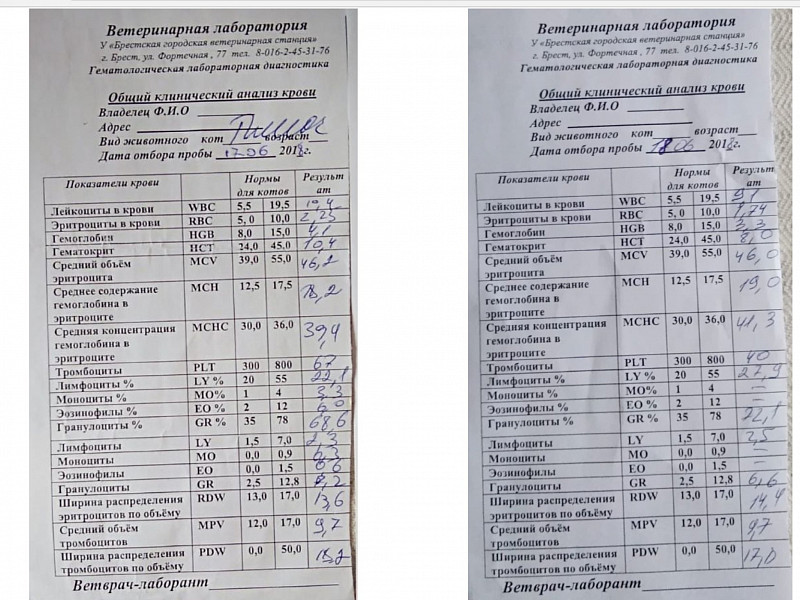 Ветеринарная лаборатория
У «Брестская городская ветеринарная станция»
г. Брест, ул. Фортечная , 77 тел. 8-016-2-45-31-76
Гематологическая лабораторная диагностика
Общий клинический анализ крови
Владелец Ф.И.О
Адрес
Вид животного кот возраст
Дата отбора пробы 17.06 2018г.
Показатели крови Нормы для котов Результат
Лейкоциты в крови WBC 5,5 19,5
Эритроциты в крови RBC 5, 0 10,0 2,25
Гемоглобин HGB 8,0 15,0 4,1
Гематокрит HCT 24,0 45,0 10,4
Средний объём эритроцита MCV 39,0 55,0 46,2
Среднее содержание гемоглобина в эритроците MCH 12,5 17,5 18,2
Средняя концентрация гемоглобина в эритроците MCHC 30,0 36,0 39,4
Тромбоциты PLT 300 800 67
Лимфоциты % LY % 20 55 22,1
Моноциты % MO% 1 4 3,3
Эозинофилы % EO % 2 12 6,0
Гранулоциты % GR % 35 78 68,6
Лимфоциты LY 1,5 7,0 2,3
Моноциты MO 0,0 0,9
Эозинофилы EO 0,0 1,5 0,6
Гранулоциты GR 2,5 12,8
Ширина распределения эритроцитов по объёму RDW 13,0 17,0 13,6
Средний объём тромбоцитов MPV 12,0 17,0 9,7
Ширина распределения тромбоцитов по объёму PDW 0,0 50,0 18,2
Ветврач-лаборант
Ветеринарная лаборатория
У «Брестская городская ветеринарная станция»
г. Брест, ул. Фортечная , 77 тел. 8-016-2-45-31-76
Гематологическая лабораторная диагностика
Общий клинический анализ крови
Владелец Ф.И.О
Адрес
Вид животного кот возраст
Дата отбора пробы 18 06 2018г.
Показатели крови Нормы для котов Результат
Лейкоциты в крови WBC 5,5 19,5 9,1
Эритроциты в крови RBC 5, 0 10,0 1,74
Гемоглобин HGB 8,0 15,0 3,3
Гематокрит HCT 24,0 45,0 8,0
Средний объём эритроцита MCV 39,0 55,0 46,0
Среднее содержание гемоглобина в эритроците MCH 12,5 17,5 19,0
Средняя концентрация гемоглобина в эритроците MCHC 30,0 36,0 41,3
Тромбоциты PLT 300 800 40
Лимфоциты % LY % 20 55 27,9
Моноциты % MO% 1 4 —
Эозинофилы % EO % 2 12 —
Гранулоциты % GR % 35 78
Лимфоциты LY 1,5 7,0 2,5
Моноциты MO 0,0 0,9 —
Эозинофилы EO 0,0 1,5 —
Гранулоциты GR 2,5 12,8 6,6
Ширина распределения эритроцитов по объёму RDW 13,0 17,0 14,4
Средний объём тромбоцитов MPV 12,0 17,0 9,7
Ширина распределения тромбоцитов по объёму PDW 0,0 50,0 17,0
Ветврач-лаборант